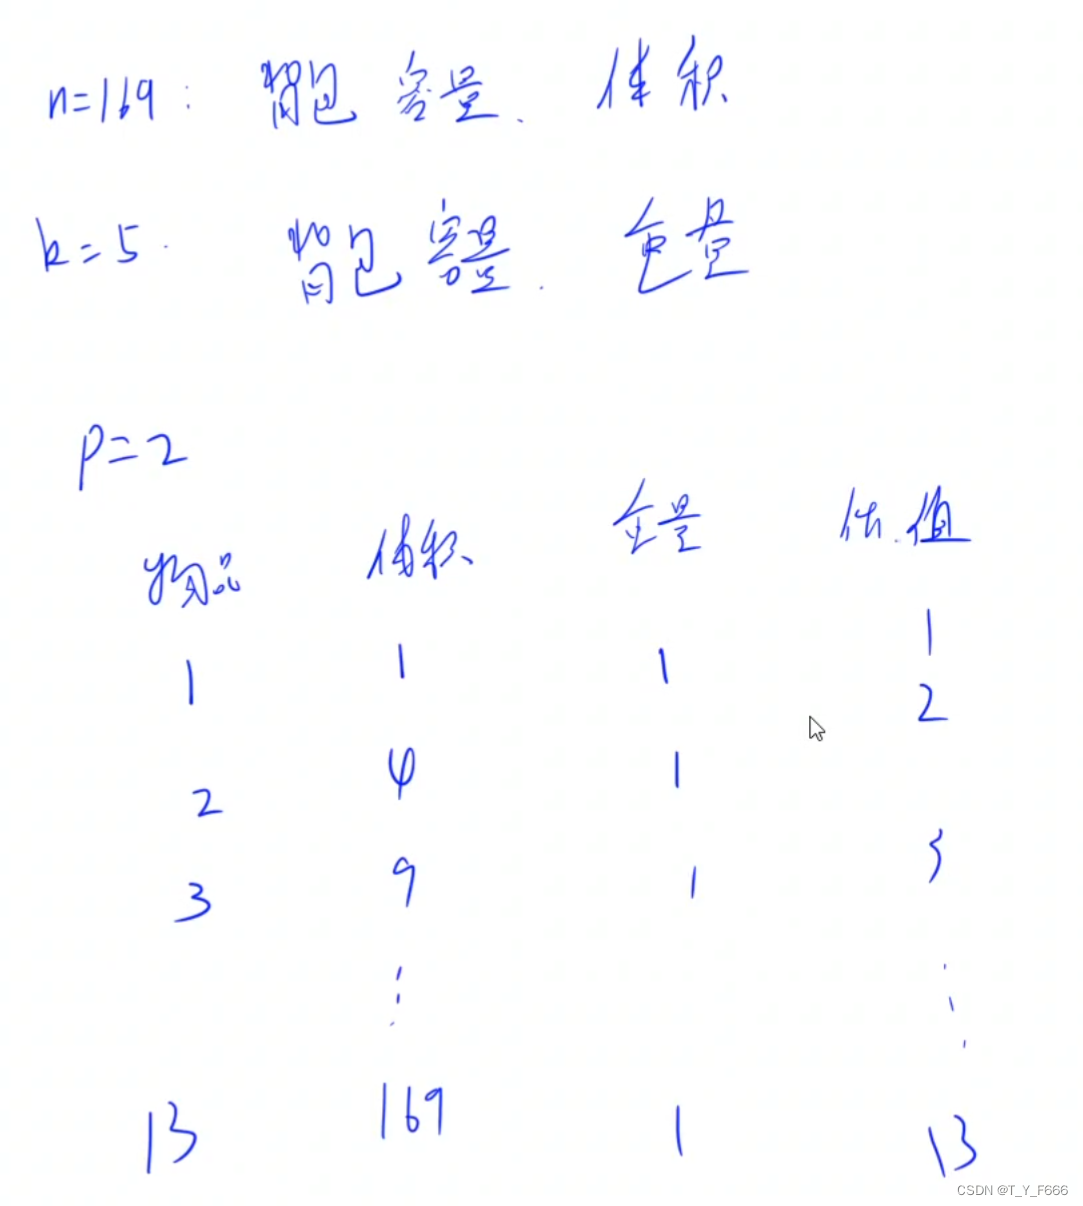 n=169: 背包 容量. 体积
k=5. 背包 容量. 重量
P=2
物品 体积 重量 价值
1 1 1 1
2 4 1 2
3 9 1 3
⋮ ⋮
13 169 1 13
CSDN @T_Y_F666